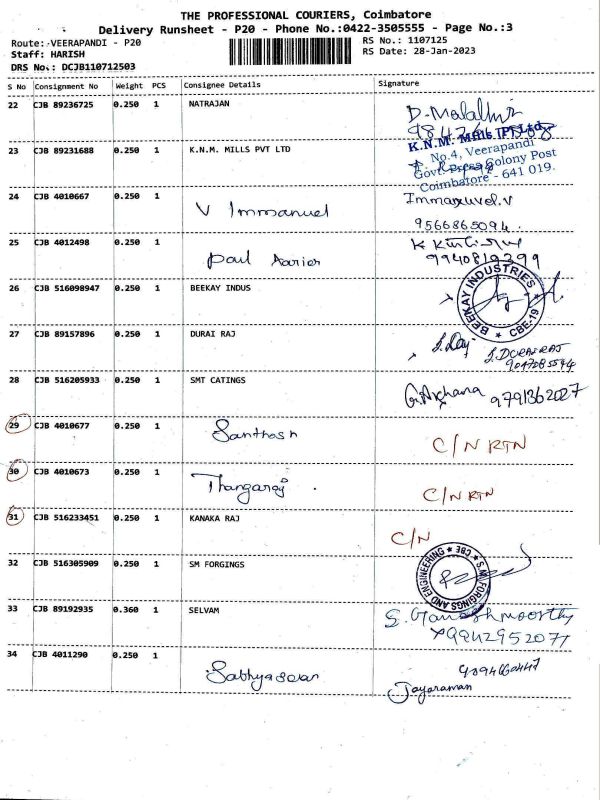 THE PROFESSIONAL COURIERS, Coimbatore
Delivery Runsheet - P20 - Phone No.:0422-3505555 - Page No.:3
Route: VEERAPANDI - P20
RS No.: 1107125
Staff: HARISH
RS Date: 28-Jan-2023
DRS No.: DCJB110712503
S No Consignment No Weight PCS Consignee Details Signature
22 CJB 89236725 0.250 1 NATRAJAN
23 CJB 89231688 0.250 1 K.N.M. MILLS PVT LTD
K.N.M. Mills (P) Ltd.
No.4, Veerapandi
Govt. Press Colony Post
Coimbatore - 641 019.
24 CJB 4010667 0.250 1 V Immanuel Immanuvel.V
9566865094.
25 CJB 4012498 0.250 1 paul
9940819399
26 CJB 516098947 0.250 1 BEEKAY INDUS
BEEKAY INDUSTRIES
CBE-19
27 CJB 89157896 0.250 1 DURAI RAJ
S.DURAIRAJ
28 CJB 516205933 0.250 1 SMT CATINGS G.Archana 9791362027
29 CJB 4010677 0.250 1 Santhosh C/N RTN
30 CJB 4010673 0.250 1 Thangaraj. C/N RTN
31 CJB 516233451 0.250 1 KANAKA RAJ C/N
32 CJB 516305909 0.250 1 SM FORGINGS
S.M. FORGINGS AND ENGINEERING * CBE *
33 CJB 89192935 0.360 1 SELVAM S.Ganeshmoorthy
9942952071
34 CJB 4011290 0.250 1
Jayaraman